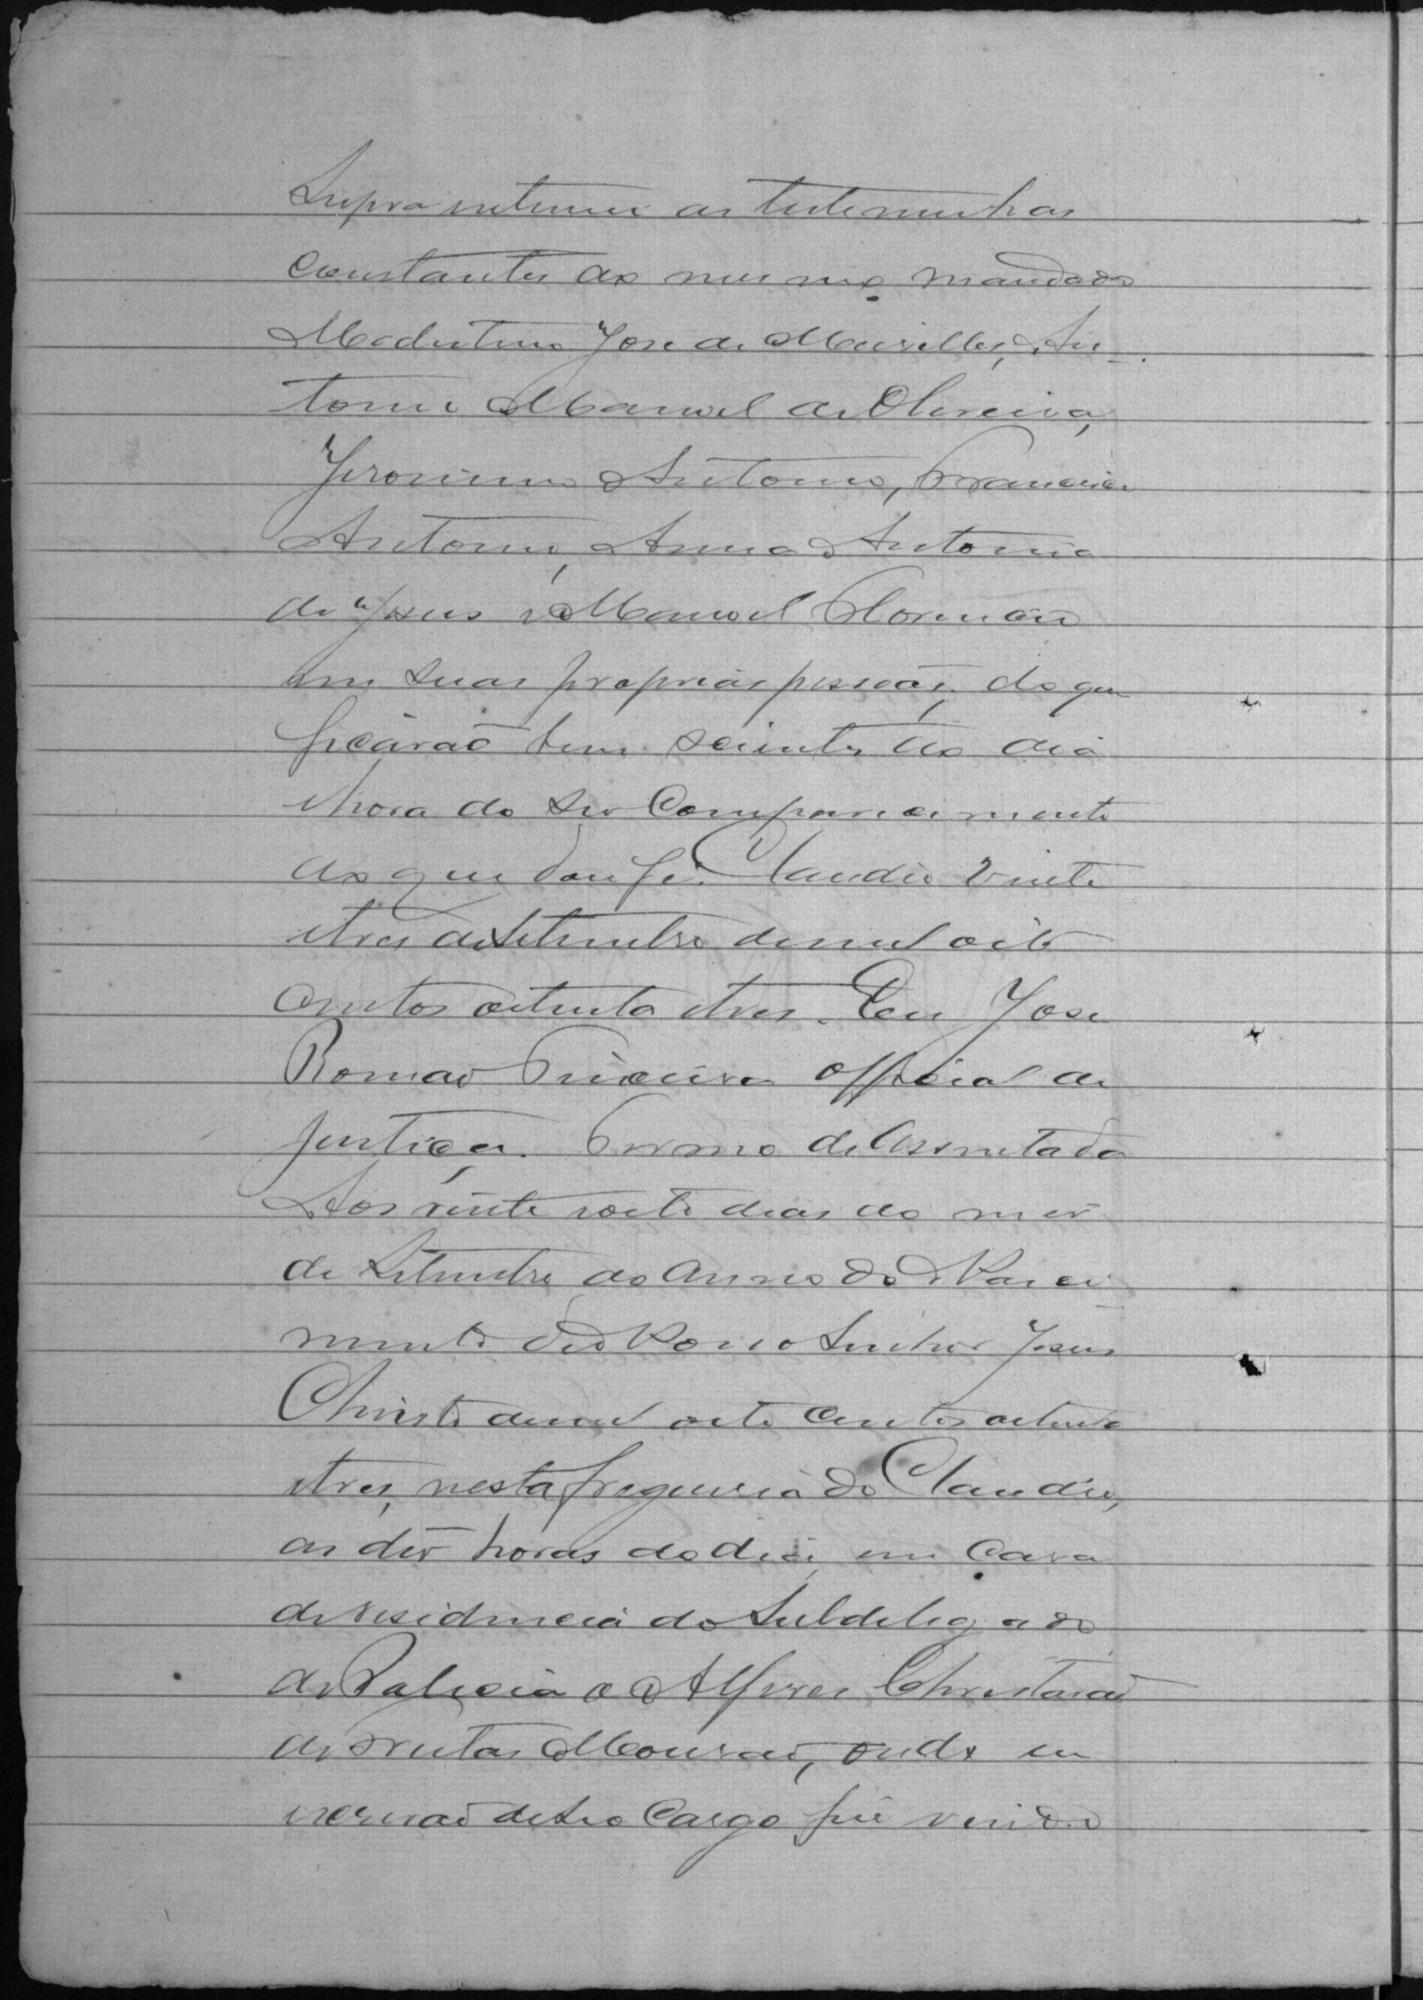 Supra intimei as testemunhas
Constantes do mesmo mandado
Modestino José de Meirelles, An-
tonio Manoel de Oliveira,
Jeronimo Antonio, Francisco
Antonio, Anna Antonia
de Jesus e Manoel Florencio
em suas proprias pessoas, do que
ficarão bem scientes do dia
e hora do seo Comparecimento
do que dou fé. Claudio vinte
e tres de Setembro de mil oito
centos oitenta e tres. Eu José
Romão Teixeira official de
justiça. Termo de Assentada
Aos vinte e oito dias do mez
de Setembro do Anno do Nasci-
mento de Nosso Senhor Jesus
Christo de mil oito Centos oitenta
e tres, nesta freguezia do Claudio,
as dez horas do dia, em Casa
de residencia do Subdelegado
de Policia o Alferes Christovão
de Mourão, onde eu
escrivão de seo Cargo fui vindo